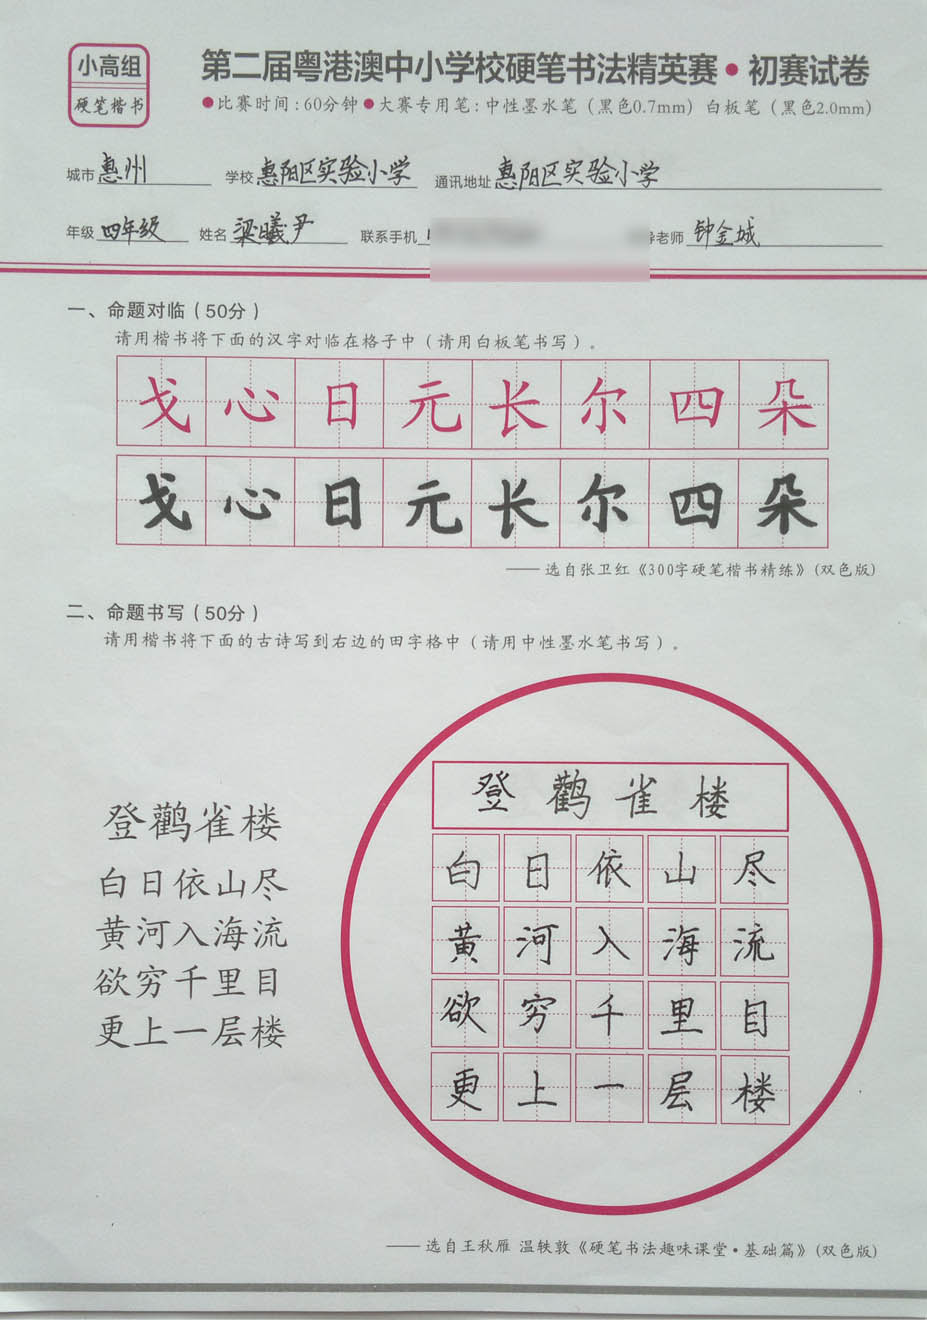 小高组
硬笔楷书
第二届粤港澳中小学校硬笔书法精英赛·初赛试卷
●比赛时间:60分钟●大赛专用笔:中性墨水笔(黑色0.7mm) 白板笔(黑色2.0mm)
城市 惠州 学校 惠阳区实验小学 通讯地址 惠阳区实验小学
年级 四年级 姓名 梁曦尹 联系手机 导老师 钟金城
一、命题对临(50分)
请用楷书将下面的汉字对临在格子中(请用白板笔书写)。
戈心日元长尔四朵
戈心日元长尔四朵
——选自张卫红《300字硬笔楷书精练》(双色版)
二、命题书写(50分)
请用楷书将下面的古诗写到右边的田字格中(请用中性墨水笔书写)。
登鹳雀楼
白日依山尽
黄河入海流
欲穷千里目
更上一层楼
登鹳雀楼
白日依山尽
黄河入海流
欲穷千里目
更上一层楼
——选自王秋雁 温轶敦《硬笔书法趣味课堂·基础篇》(双色版)